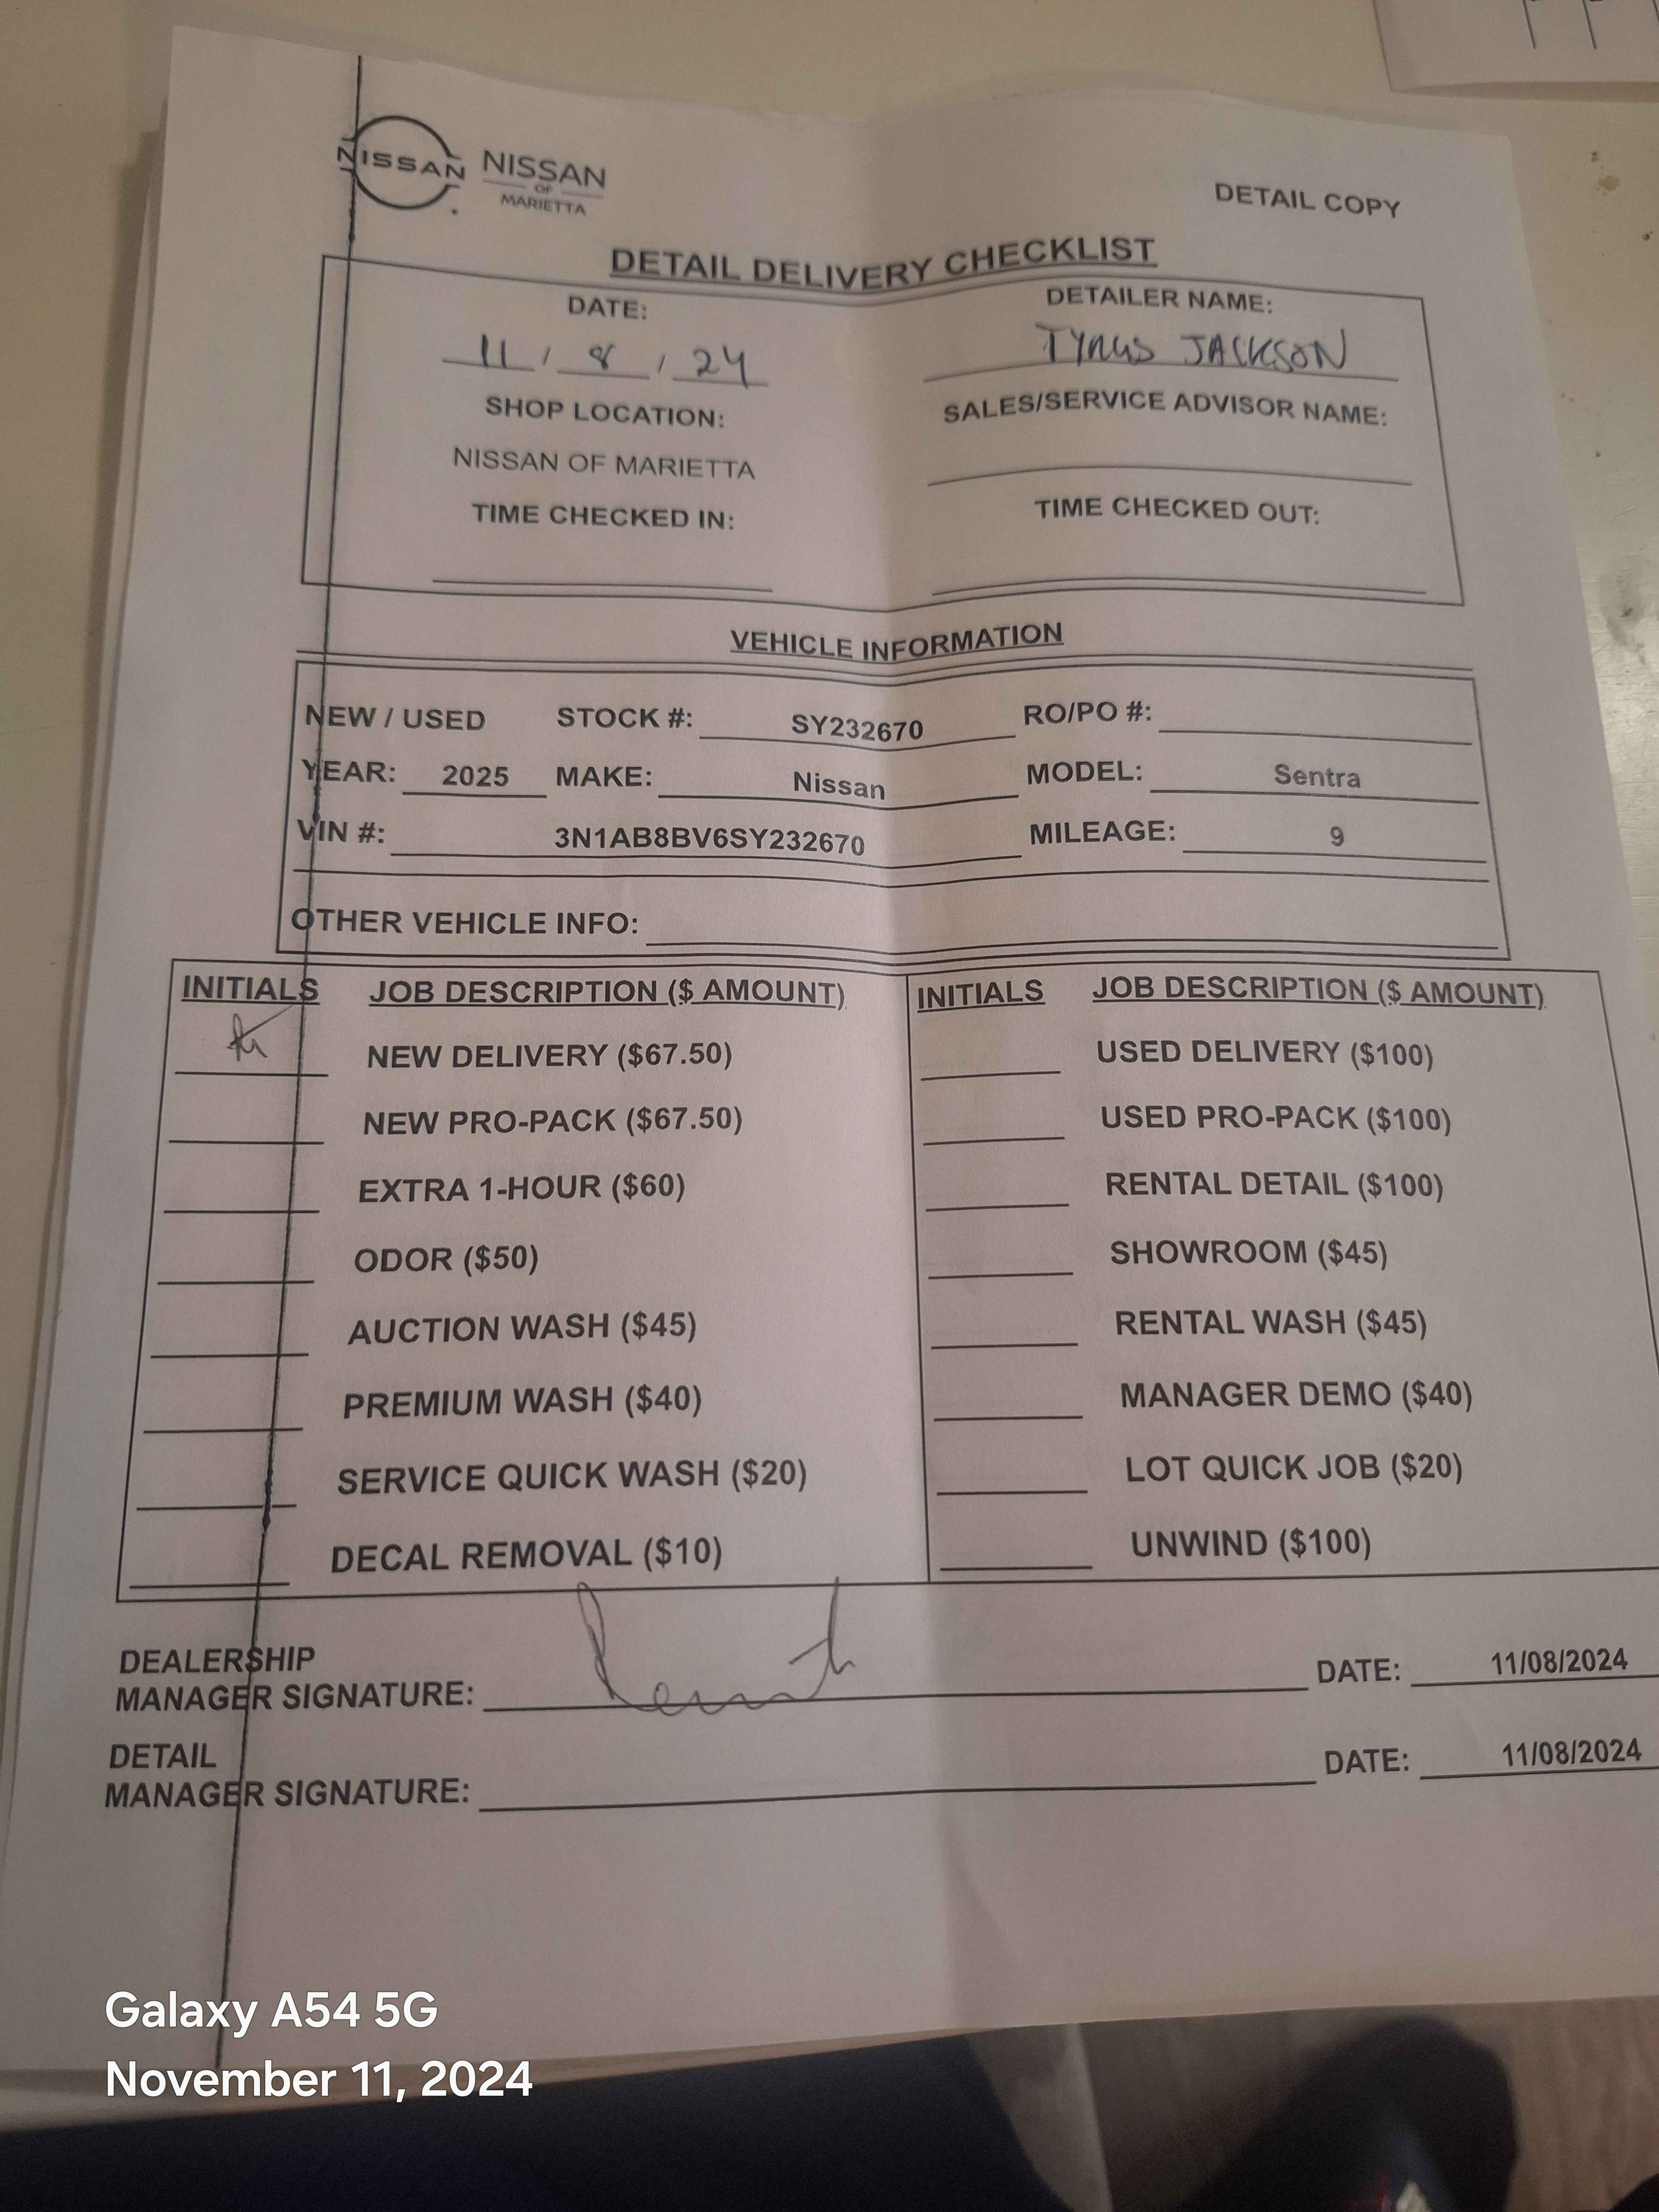 NISSAN NISSAN
OF
MARIETTA
DETAIL COPY
DETAIL DELIVERY CHECKLIST
DATE: DETAILER NAME:
11 / 8 / 24 TYRUS JACKSON
SHOP LOCATION: SALES/SERVICE ADVISOR NAME:
NISSAN OF MARIETTA
TIME CHECKED IN: TIME CHECKED OUT:
VEHICLE INFORMATION
NEW / USED STOCK #: SY232670 RO/PO #:
YEAR: 2025 MAKE: Nissan MODEL: Sentra
VIN #: 3N1AB8BV6SY232670 MILEAGE: 9
OTHER VEHICLE INFO:
INITIALS JOB DESCRIPTION ($ AMOUNT) INITIALS JOB DESCRIPTION ($ AMOUNT)
NEW DELIVERY ($67.50) USED DELIVERY ($100)
NEW PRO-PACK ($67.50) USED PRO-PACK ($100)
EXTRA 1-HOUR ($60) RENTAL DETAIL ($100)
ODOR ($50) SHOWROOM ($45)
AUCTION WASH ($45) RENTAL WASH ($45)
PREMIUM WASH ($40) MANAGER DEMO ($40)
SERVICE QUICK WASH ($20) LOT QUICK JOB ($20)
DECAL REMOVAL ($10) UNWIND ($100)
DEALERSHIP
MANAGER SIGNATURE: DATE: 11/08/2024
DETAIL
MANAGER SIGNATURE: DATE: 11/08/2024
Galaxy A54 5G
November 11, 2024